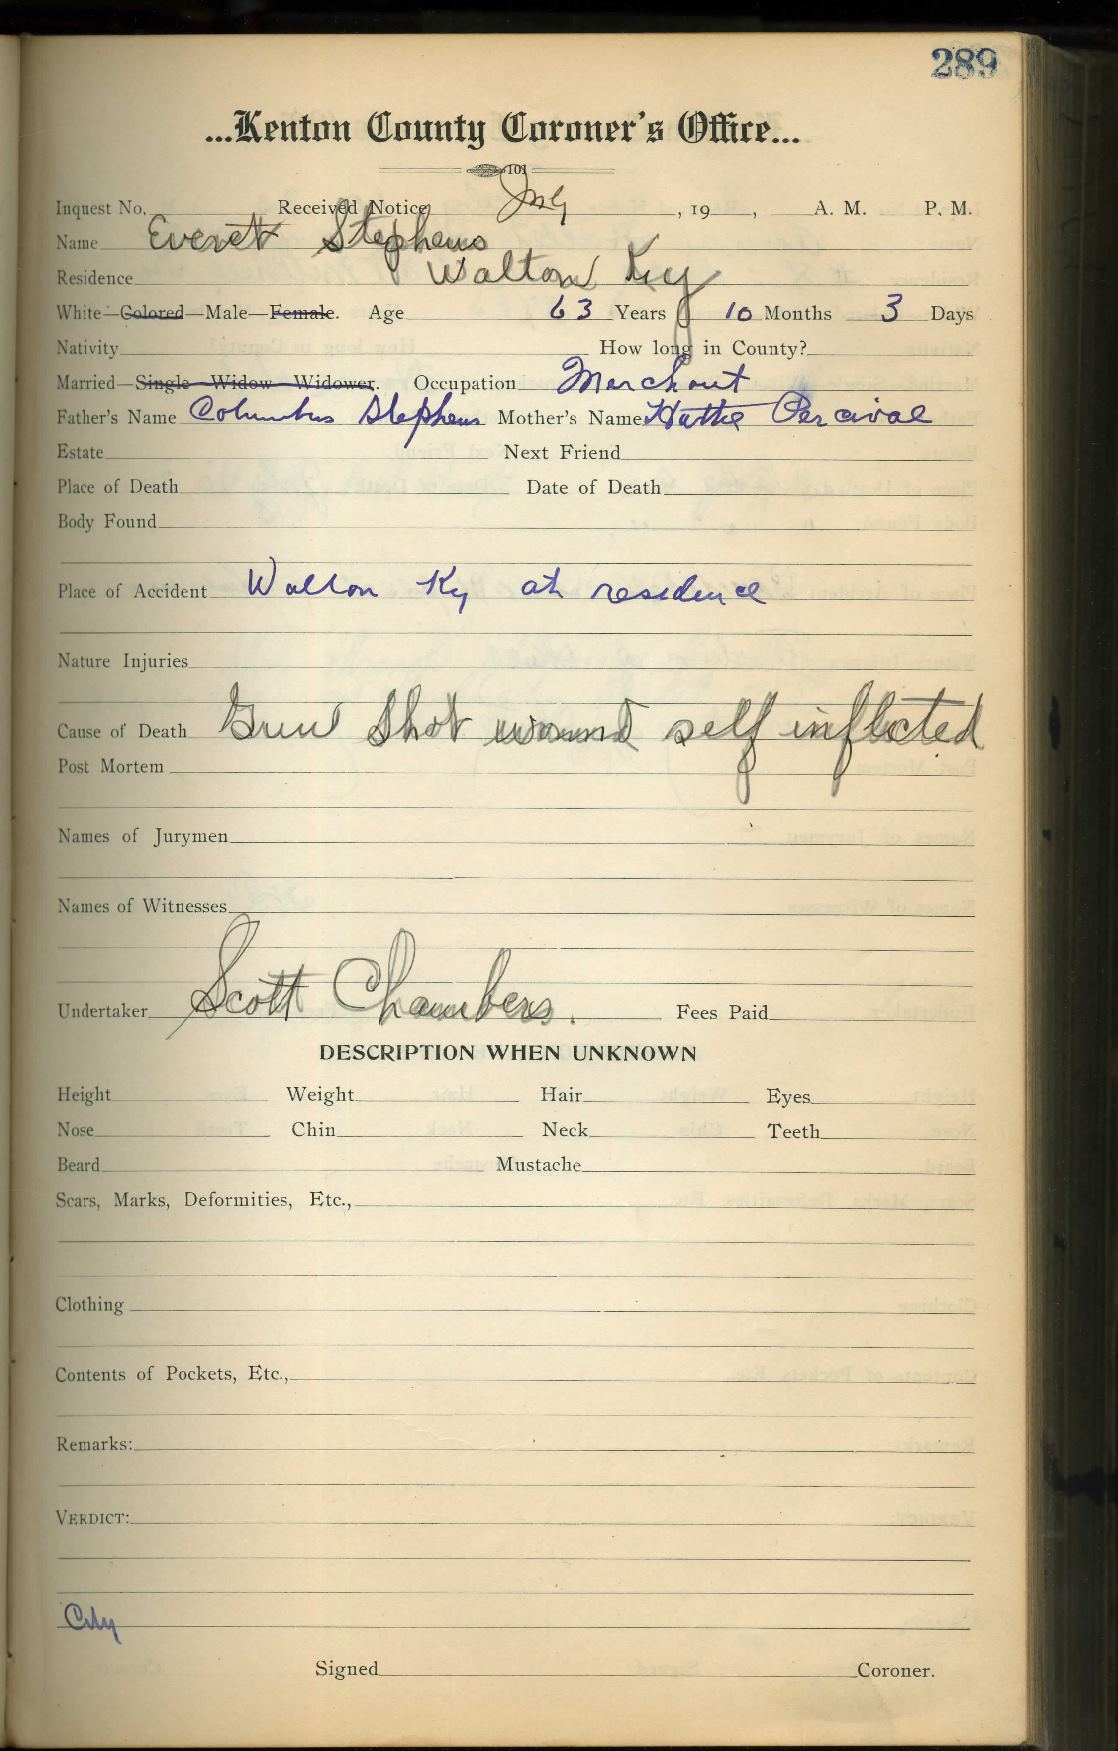 289
...Kenton County Coroner's Office...
101
Inquest No. Received Notice July , 19 , A. M. P. M.
Name Everet Stephens
Residence Walton Ky
White—Colored—Male—Female. Age 63 Years 10 Months 3 Days
Nativity How long in County?
Married—Single—Widow—Widower. Occupation Merchant
Father's Name Columbus Stephens Mother's Name Hattie Percival
Estate Next Friend
Place of Death Date of Death
Body Found
Place of Accident Walton Ky at residence
Nature Injuries
Cause of Death Gun Shot wound self inflicted
Post Mortem
Names of Jurymen
Names of Witnesses
Undertaker Scott Chambers. Fees Paid
DESCRIPTION WHEN UNKNOWN
Height Weight Hair Eyes
Nose Chin Neck Teeth
Beard Mustache
Scars, Marks, Deformities, Etc.,
Clothing
Contents of Pockets, Etc.,
Remarks:
VERDICT:
City
Signed Coroner.